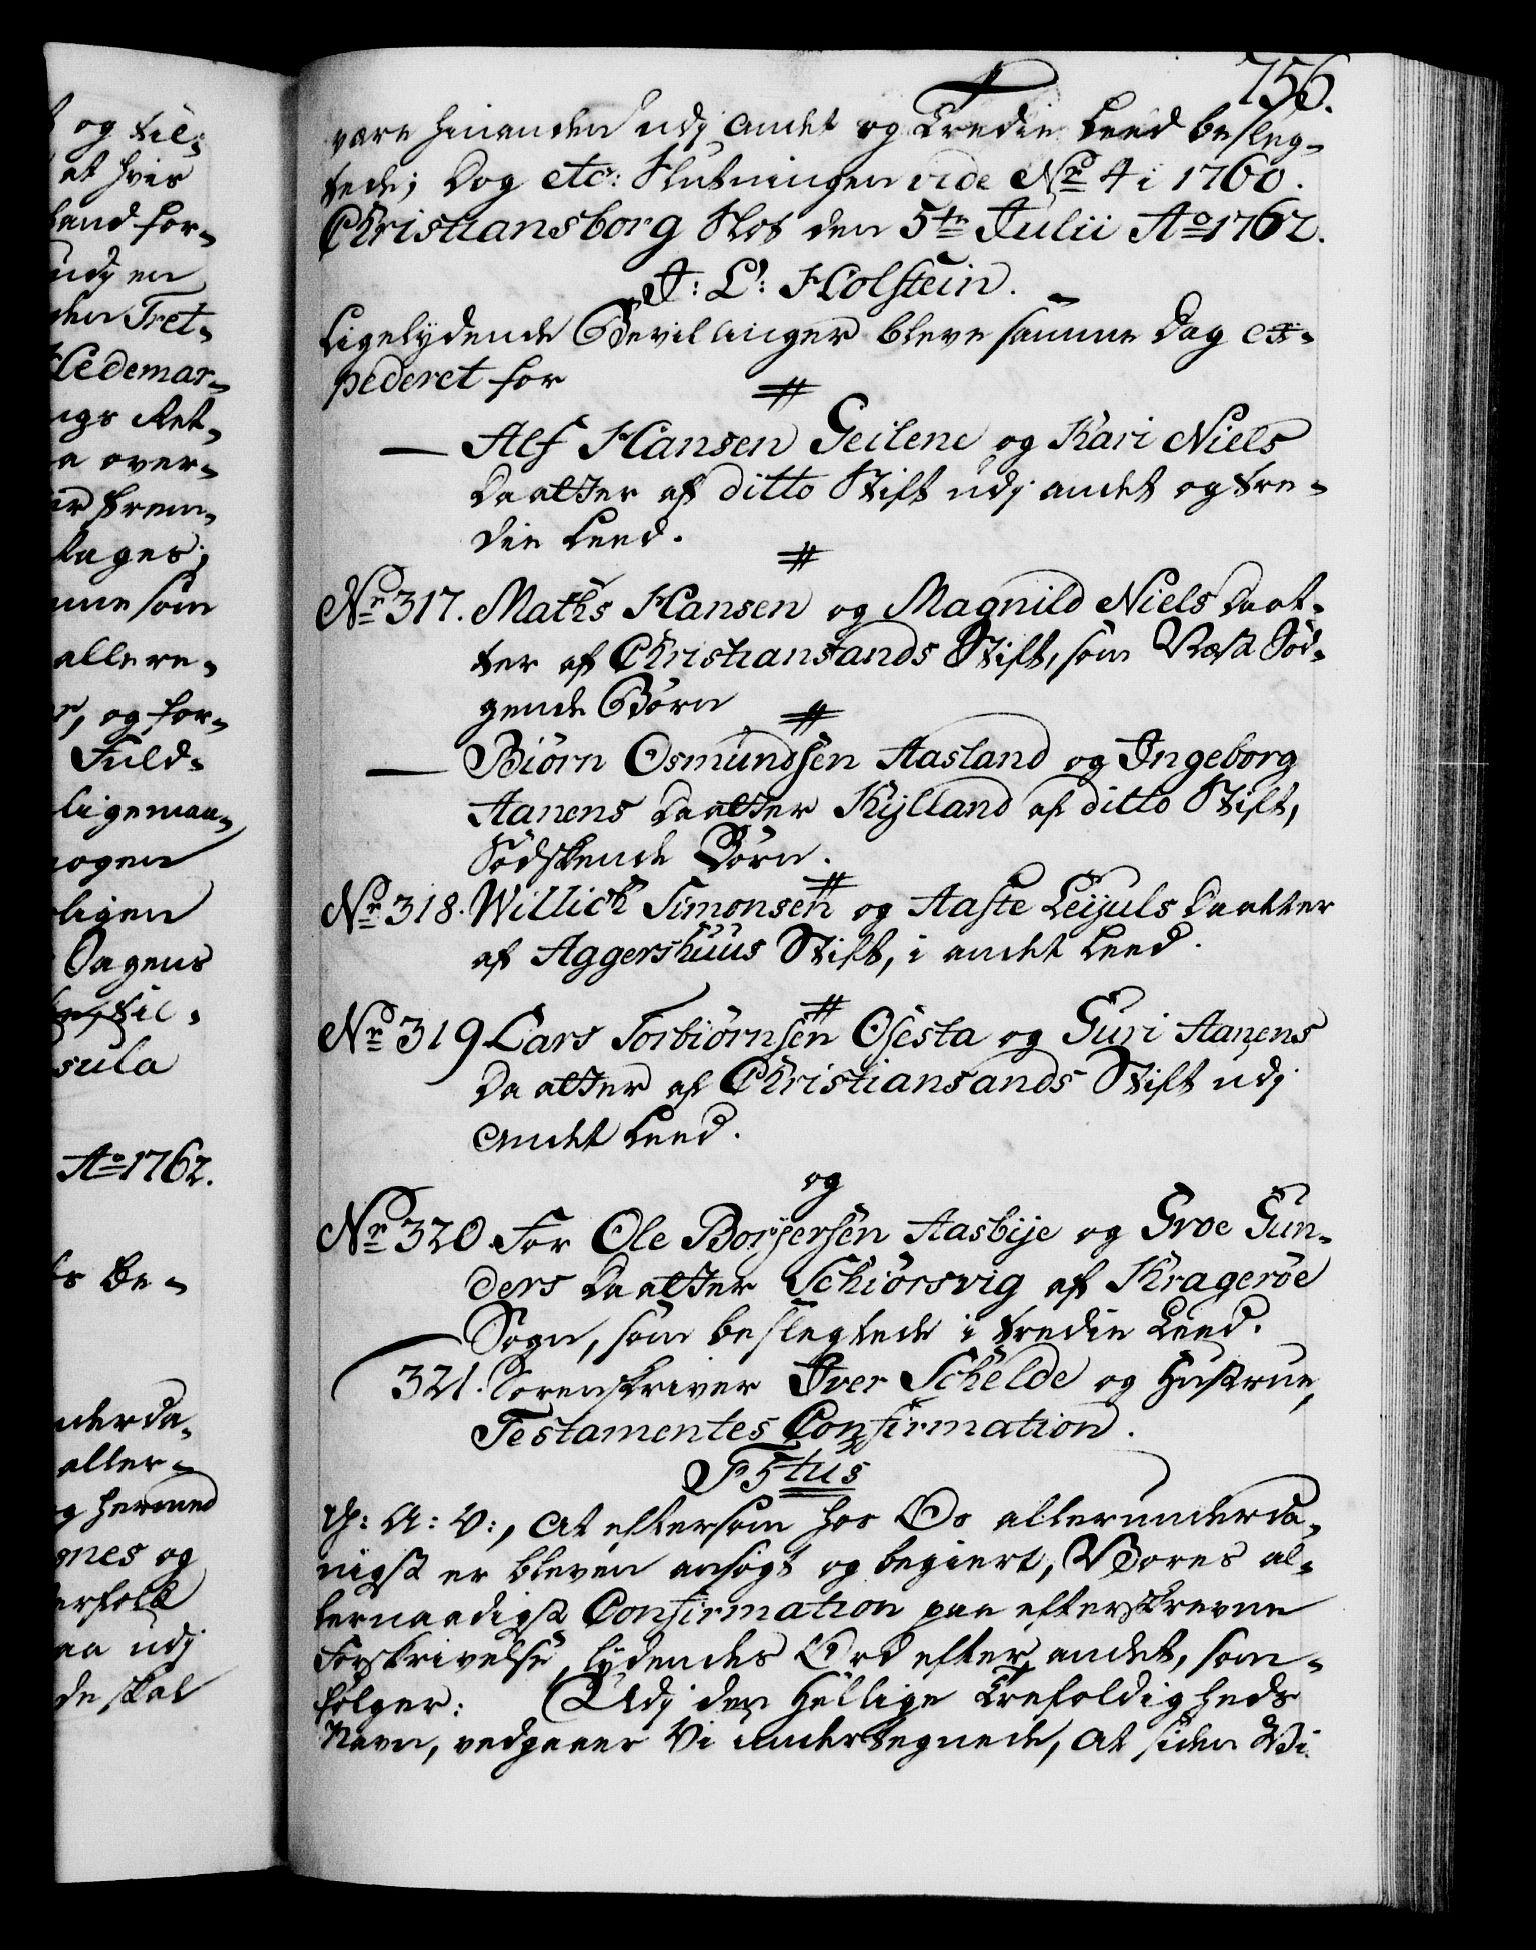 756.
være hinanden udj andet og Tredie Leed besleg-
tede; Dog etc: Slutningen vide No 4 i 1760.
Christiansborg Slot den 5te Julii Ao 1762.
J: L: Holstein.
Ligelydende Bevillinger bleve samme Dag ex-
pederet for
Alf Hansen Geilene og Kari Niels
Daatter af ditto Stift udj andet og tre-
die Leed.
Nr 317. Maths Hansen og Magnild Niels Daat-
ter af Christiansands Stift, som Næst Sød-
gende Børn
Biørn Osmundsen Aasland og Ingeborg
Aanens Daatter Kylland af ditto Stift,
Sødskende Børn.
Nr 318. Willich Simonsen og Aaste Leijuls Daatter
af Aggershuus Stift, i andet Leed.
Nr 319 Lars Torbiørnsen Osesta og Guri Aanens
Daatter af Christiansands Stift udj
andet Leed.
og
Nr 320. For Ole Borgersen Aasbije og Groe Gun-
ders Daatter Schiørsvig af Kragerøe
Sogn, som beslegtede i tredie Leed.
321. Sorenskriver Iver Schelde og Hustrue,
Testamentes Confirmation.
F5tus
G: A: V:, at eftersom hos Os allerunderda-
nigst er bleven ansøgt og begiert, Vores al-
lernaadigst Confirmation paa efterskrevne
Forskrivelse, lydendes Ord efter andet, som-
følger: Udj den Hellige Trefoldigheds
Navn, vedgaaer Vi undertegnede, at siden Vi
og til-
at hvis
land for-
udj en
den Tret-
Hedemar-
ngs Ret-
a over-
er frem-
tages;
nne som
allere-
r, og for-
Fuld-
ligemaa-
nogen
ligen
Dagens
sula
Ao 1762.
s Be-
nderda-
aller-
g hermed
gnes og
erfolk
aa udj
de skal